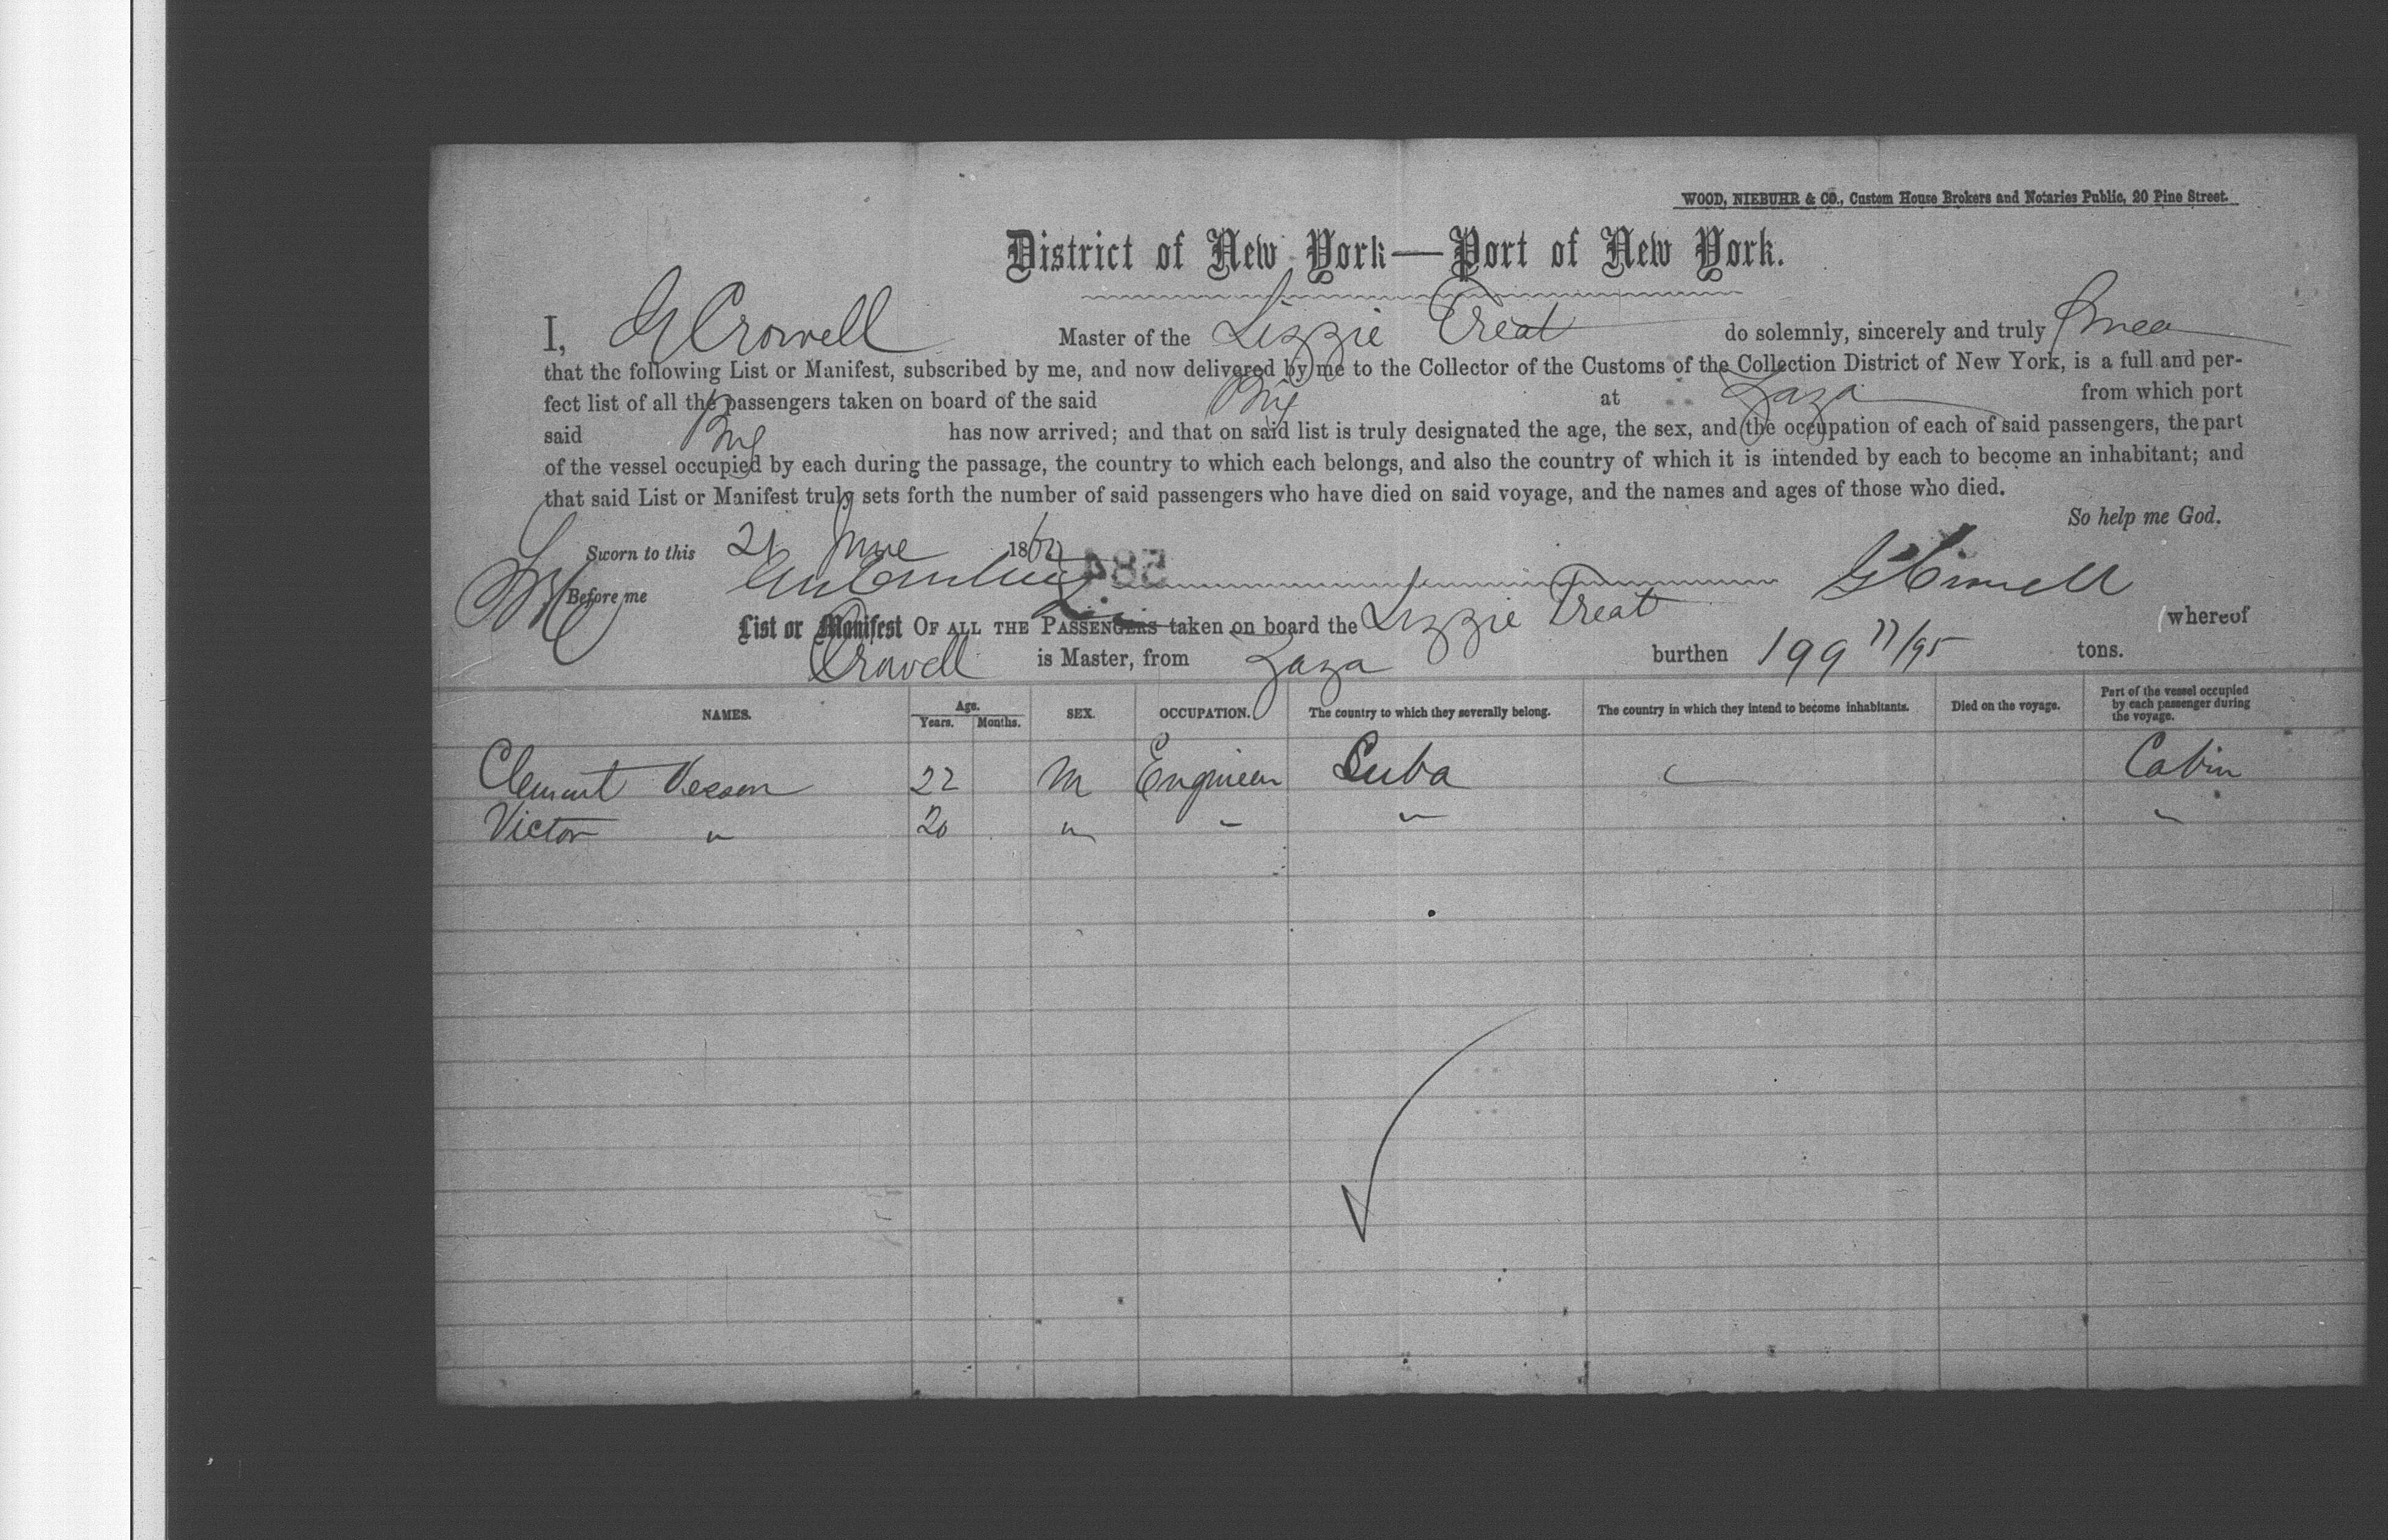 WOOD, NIEBUHR & CO., Custom House Brokers and Notaries Public, 20 Pine Street.
District of New York—Port of New York.
I, G Crowell Master of the Lizzie Treat do solemnly, sincerely and truly Swear
that the following List or Manifest, subscribed by me, and now delivered by me to the Collector of the Customs of the Collection District of New York, is a full and per-
fect list of all the passengers taken on board of the said Brig at Zaza from which port
said Brig has now arrived; and that on said list is truly designated the age, the sex, and the occupation of each of said passengers, the part
of the vessel occupied by each during the passage, the country to which each belongs, and also the country of which it is intended by each to become an inhabitant; and
that said List or Manifest truly sets forth the number of said passengers who have died on said voyage, and the names and ages of those who died.
So help me God.
Sworn to this 21 June 186
Before me G Crowell
584
List or Manifest OF ALL THE PASSENGERS taken on board the Lizzie Treat whereof
Crowell is Master, from Zaza burthen 199 77/95 tons.
NAMES. Age. Years. Months. SEX. OCCUPATION. The country to which they severally belong. The country in which they intend to become inhabitants. Died on the voyage. Part of the vessel occupied by each passenger during the voyage.
Clement Vesson 22 M Engineer Cuba Cabin
Victor " 20 " " " "